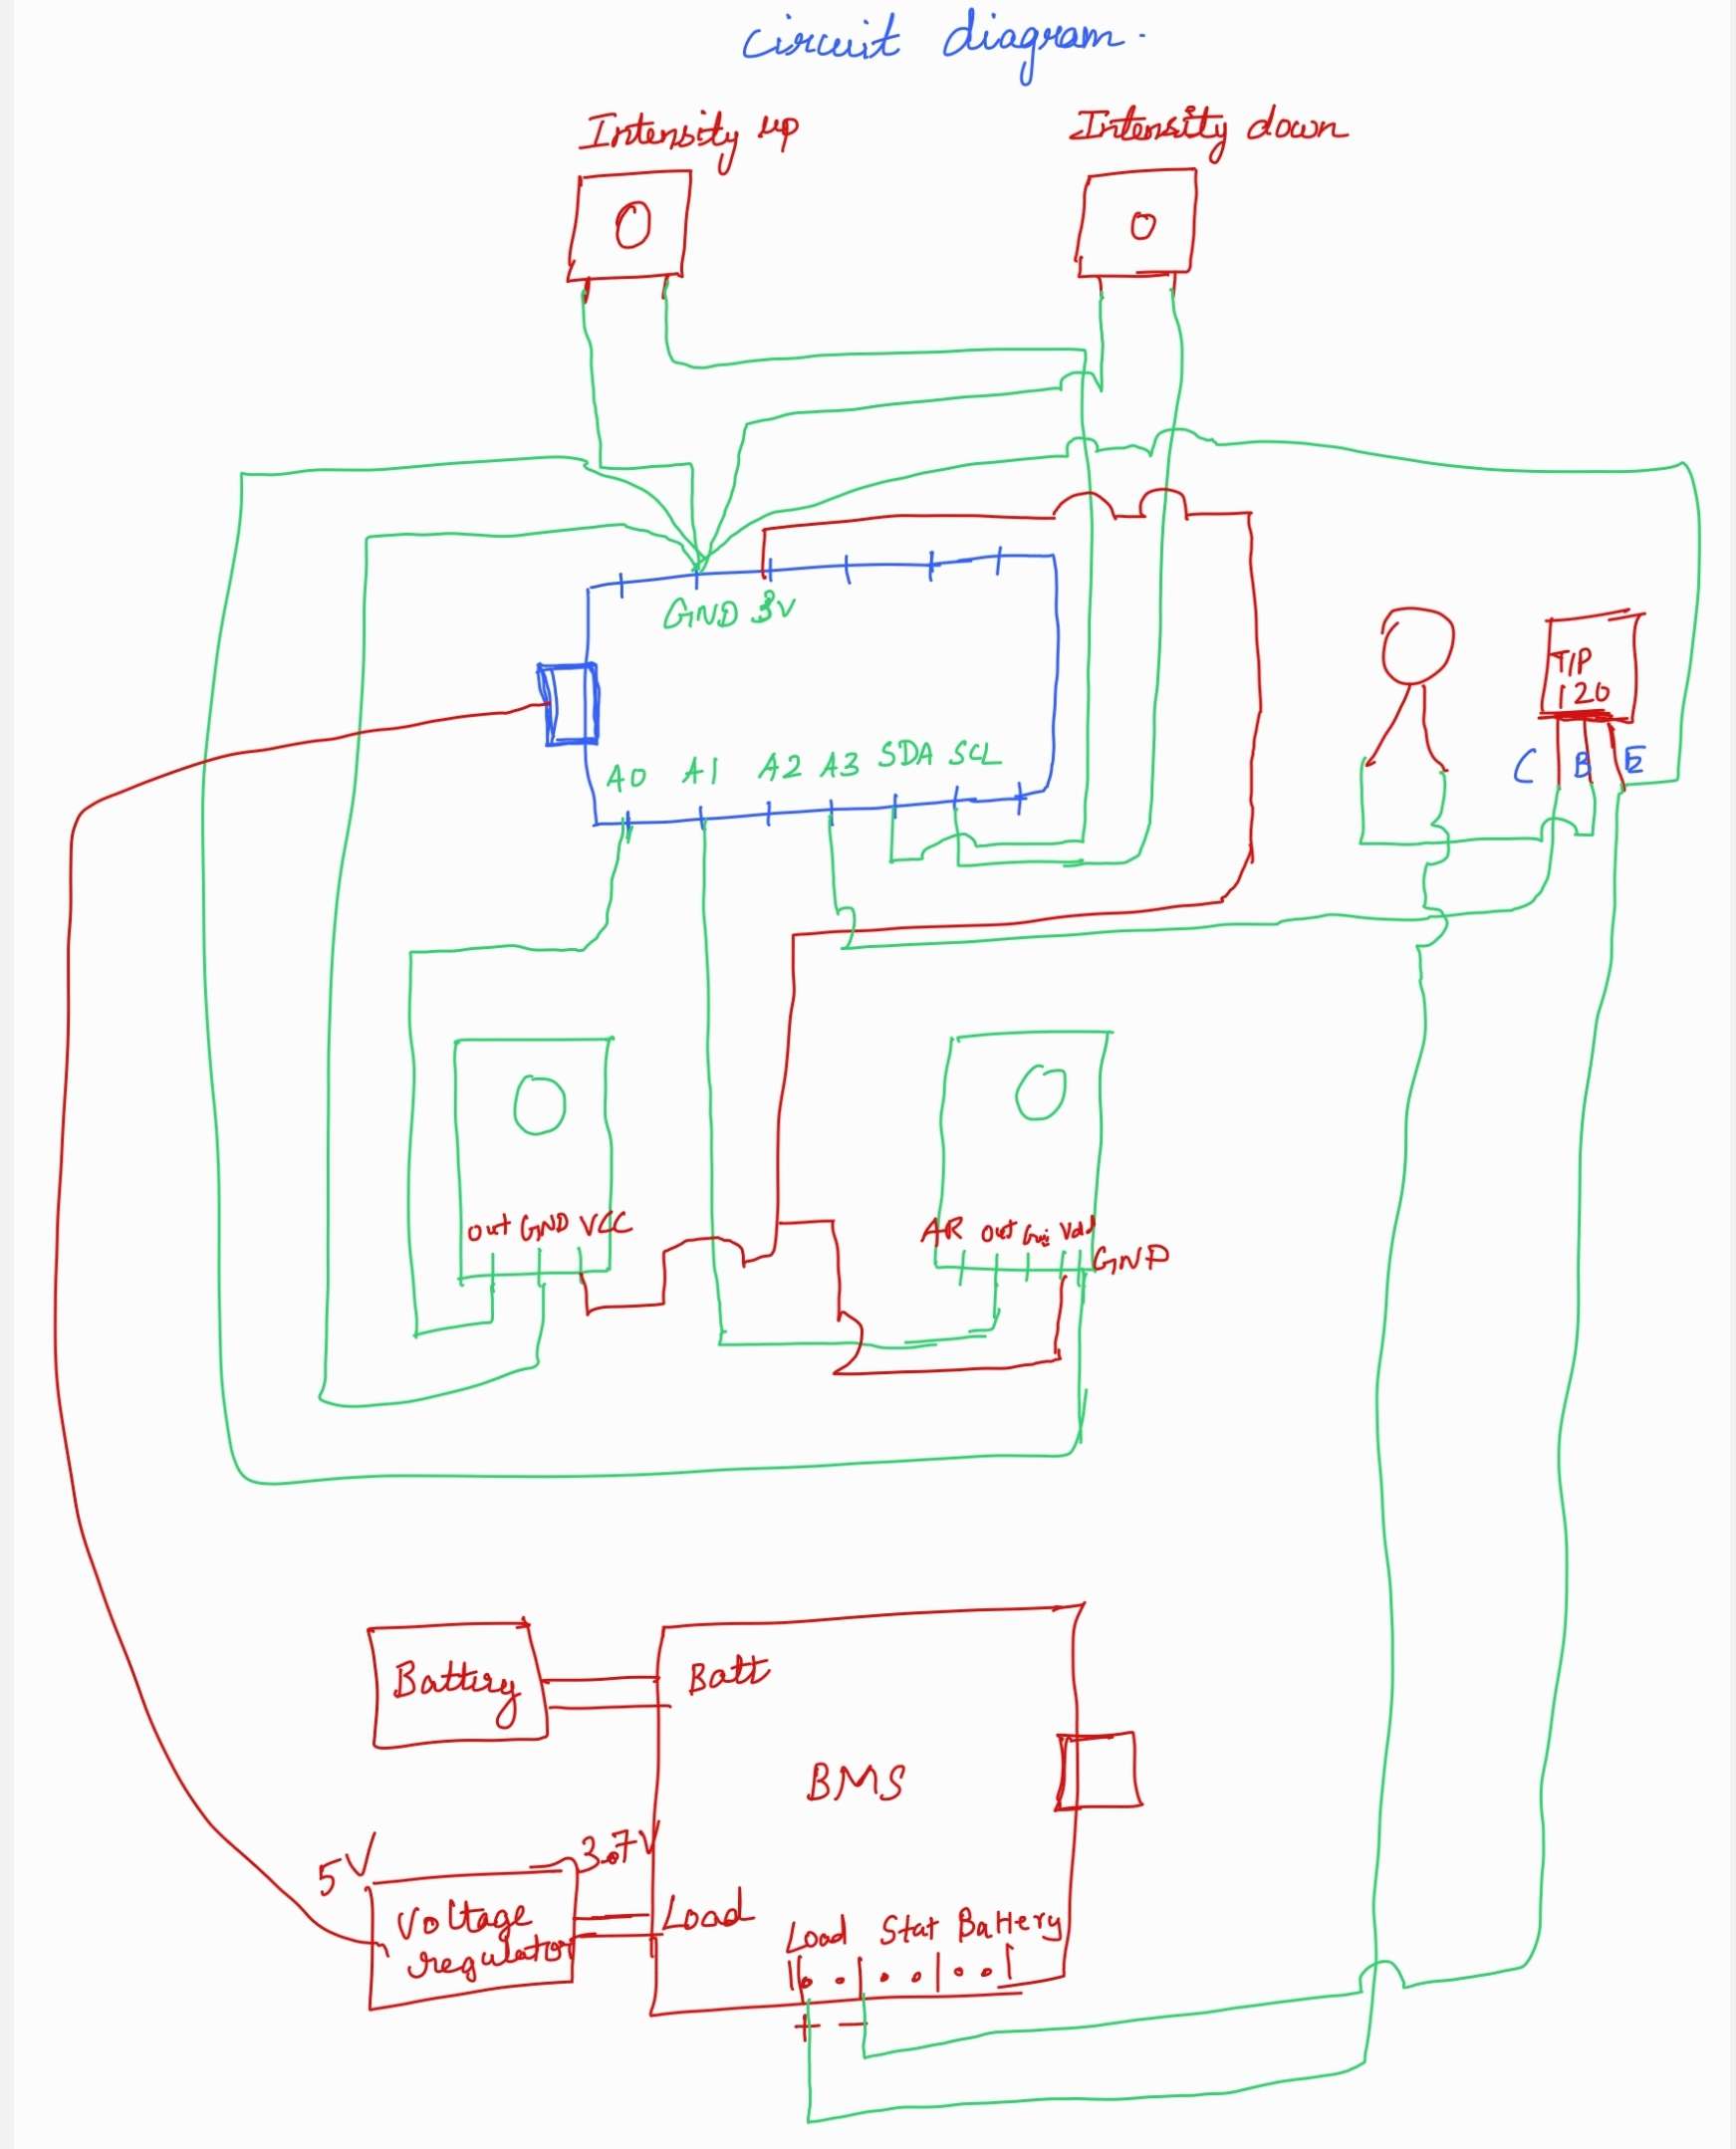 circuit diagram.
Intensity up
Intensity down
GND 3V
A0 A1 A2 A3 SDA SCL
TIP
120
C B E
out GND VCC
AR out Gain Vdd
GND
Battery
Batt
BMS
5V
3.7V
Voltage
regulator
Load
Load Stat Battery
+ -